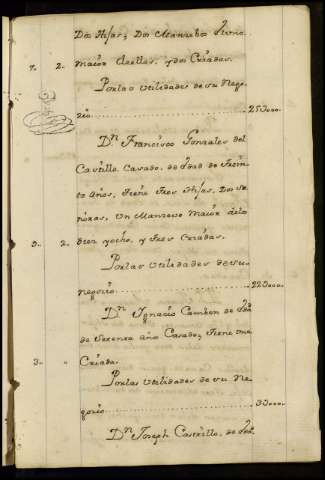 Dos Hijas, Dos Mancebos Frene
7. 2. Maior d'ellos, y dos Criadas.
Por las Utilidades de su Nego
zio 25000.
Dn. Francisco Gonzales del
Castillo, Casado, de Edad de Trein
ta Años, tiene tres Hijas, Dos Se
ñoras, Un Mancevo Maior de lo
9. 2. diez y ocho, y tres Criadas.
Por las Utilidades de su
Negozio 22000.
Dn. Ignacio Camben de Edd.
de Setenta año Casado, tiene una
3. " Criada.
Por las Utilidades de su Ne
gozio 33000.
Dn. Joseph Castrillo, de Edd.